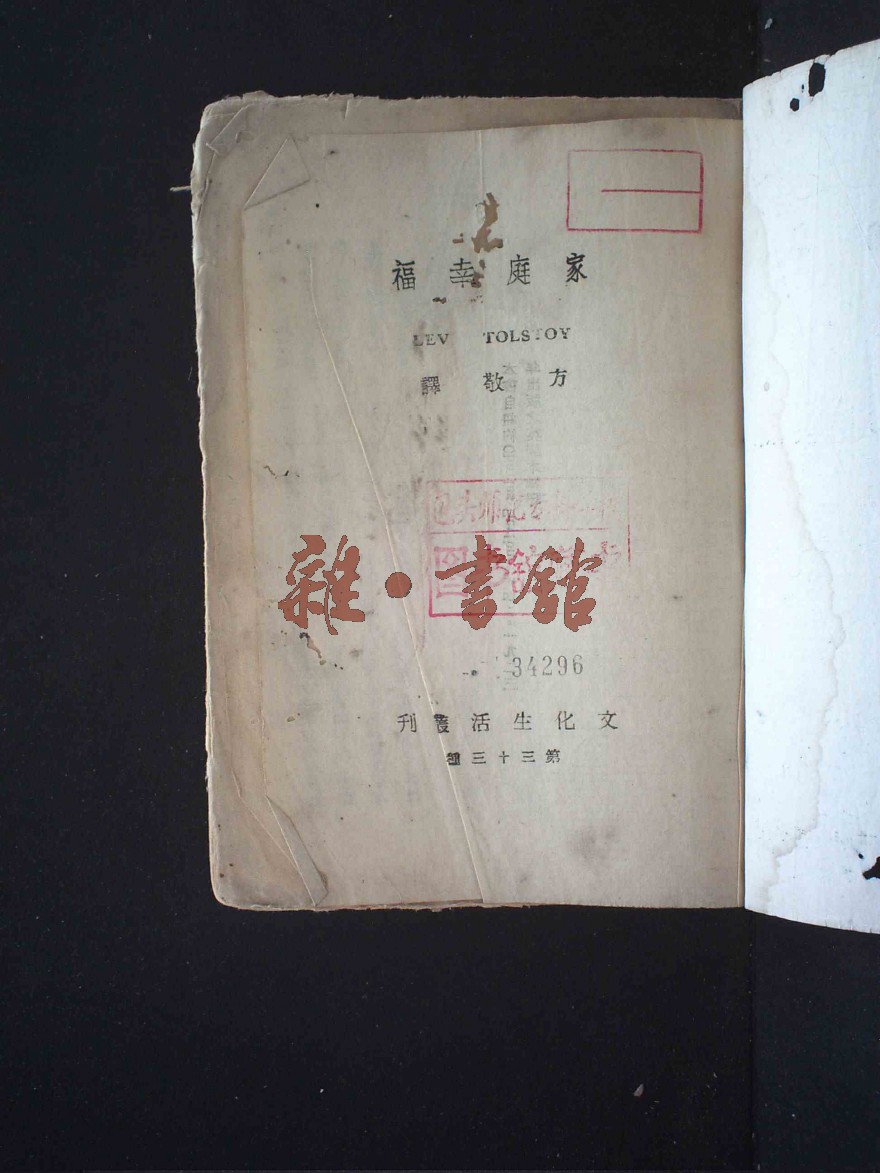 家庭幸福
LEV TOLSTOY
方敬譯
雜·書館
34296
文化生活叢刊
第三十三種